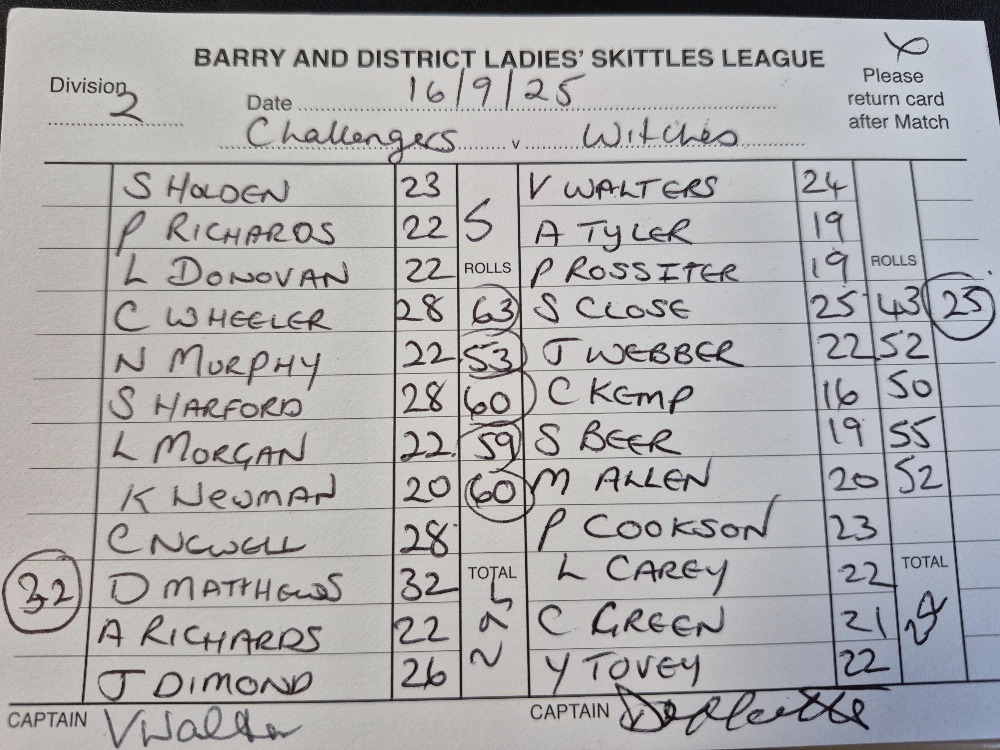 BARRY AND DISTRICT LADIES' SKITTLES LEAGUE
Division 2
Date 16/9/25
Please
return card
after Match
Challengers v Witches
S HOLDEN 23 V WALTERS 24
P RICHARDS 22 5 A TYLER 19
L DONOVAN 22 ROLLS P ROSSITER 19 ROLLS
C WHEELER 28 63 S CLOSE 25 43 25
N MURPHY 22 53 J WEBBER 22 52
S HARFORD 28 60 C KEMP 16 50
L MORGAN 22 59 S BEER 19 55
K NEWMAN 20 60 M ALLEN 20 52
C NEWELL 28 P COOKSON 23
32 D MATTHEWS 32 TOTAL L CAREY 22 TOTAL
A RICHARDS 22 C GREEN 21
J DIMOND 26 295 Y TOVEY 22
CAPTAIN VWalters CAPTAIN